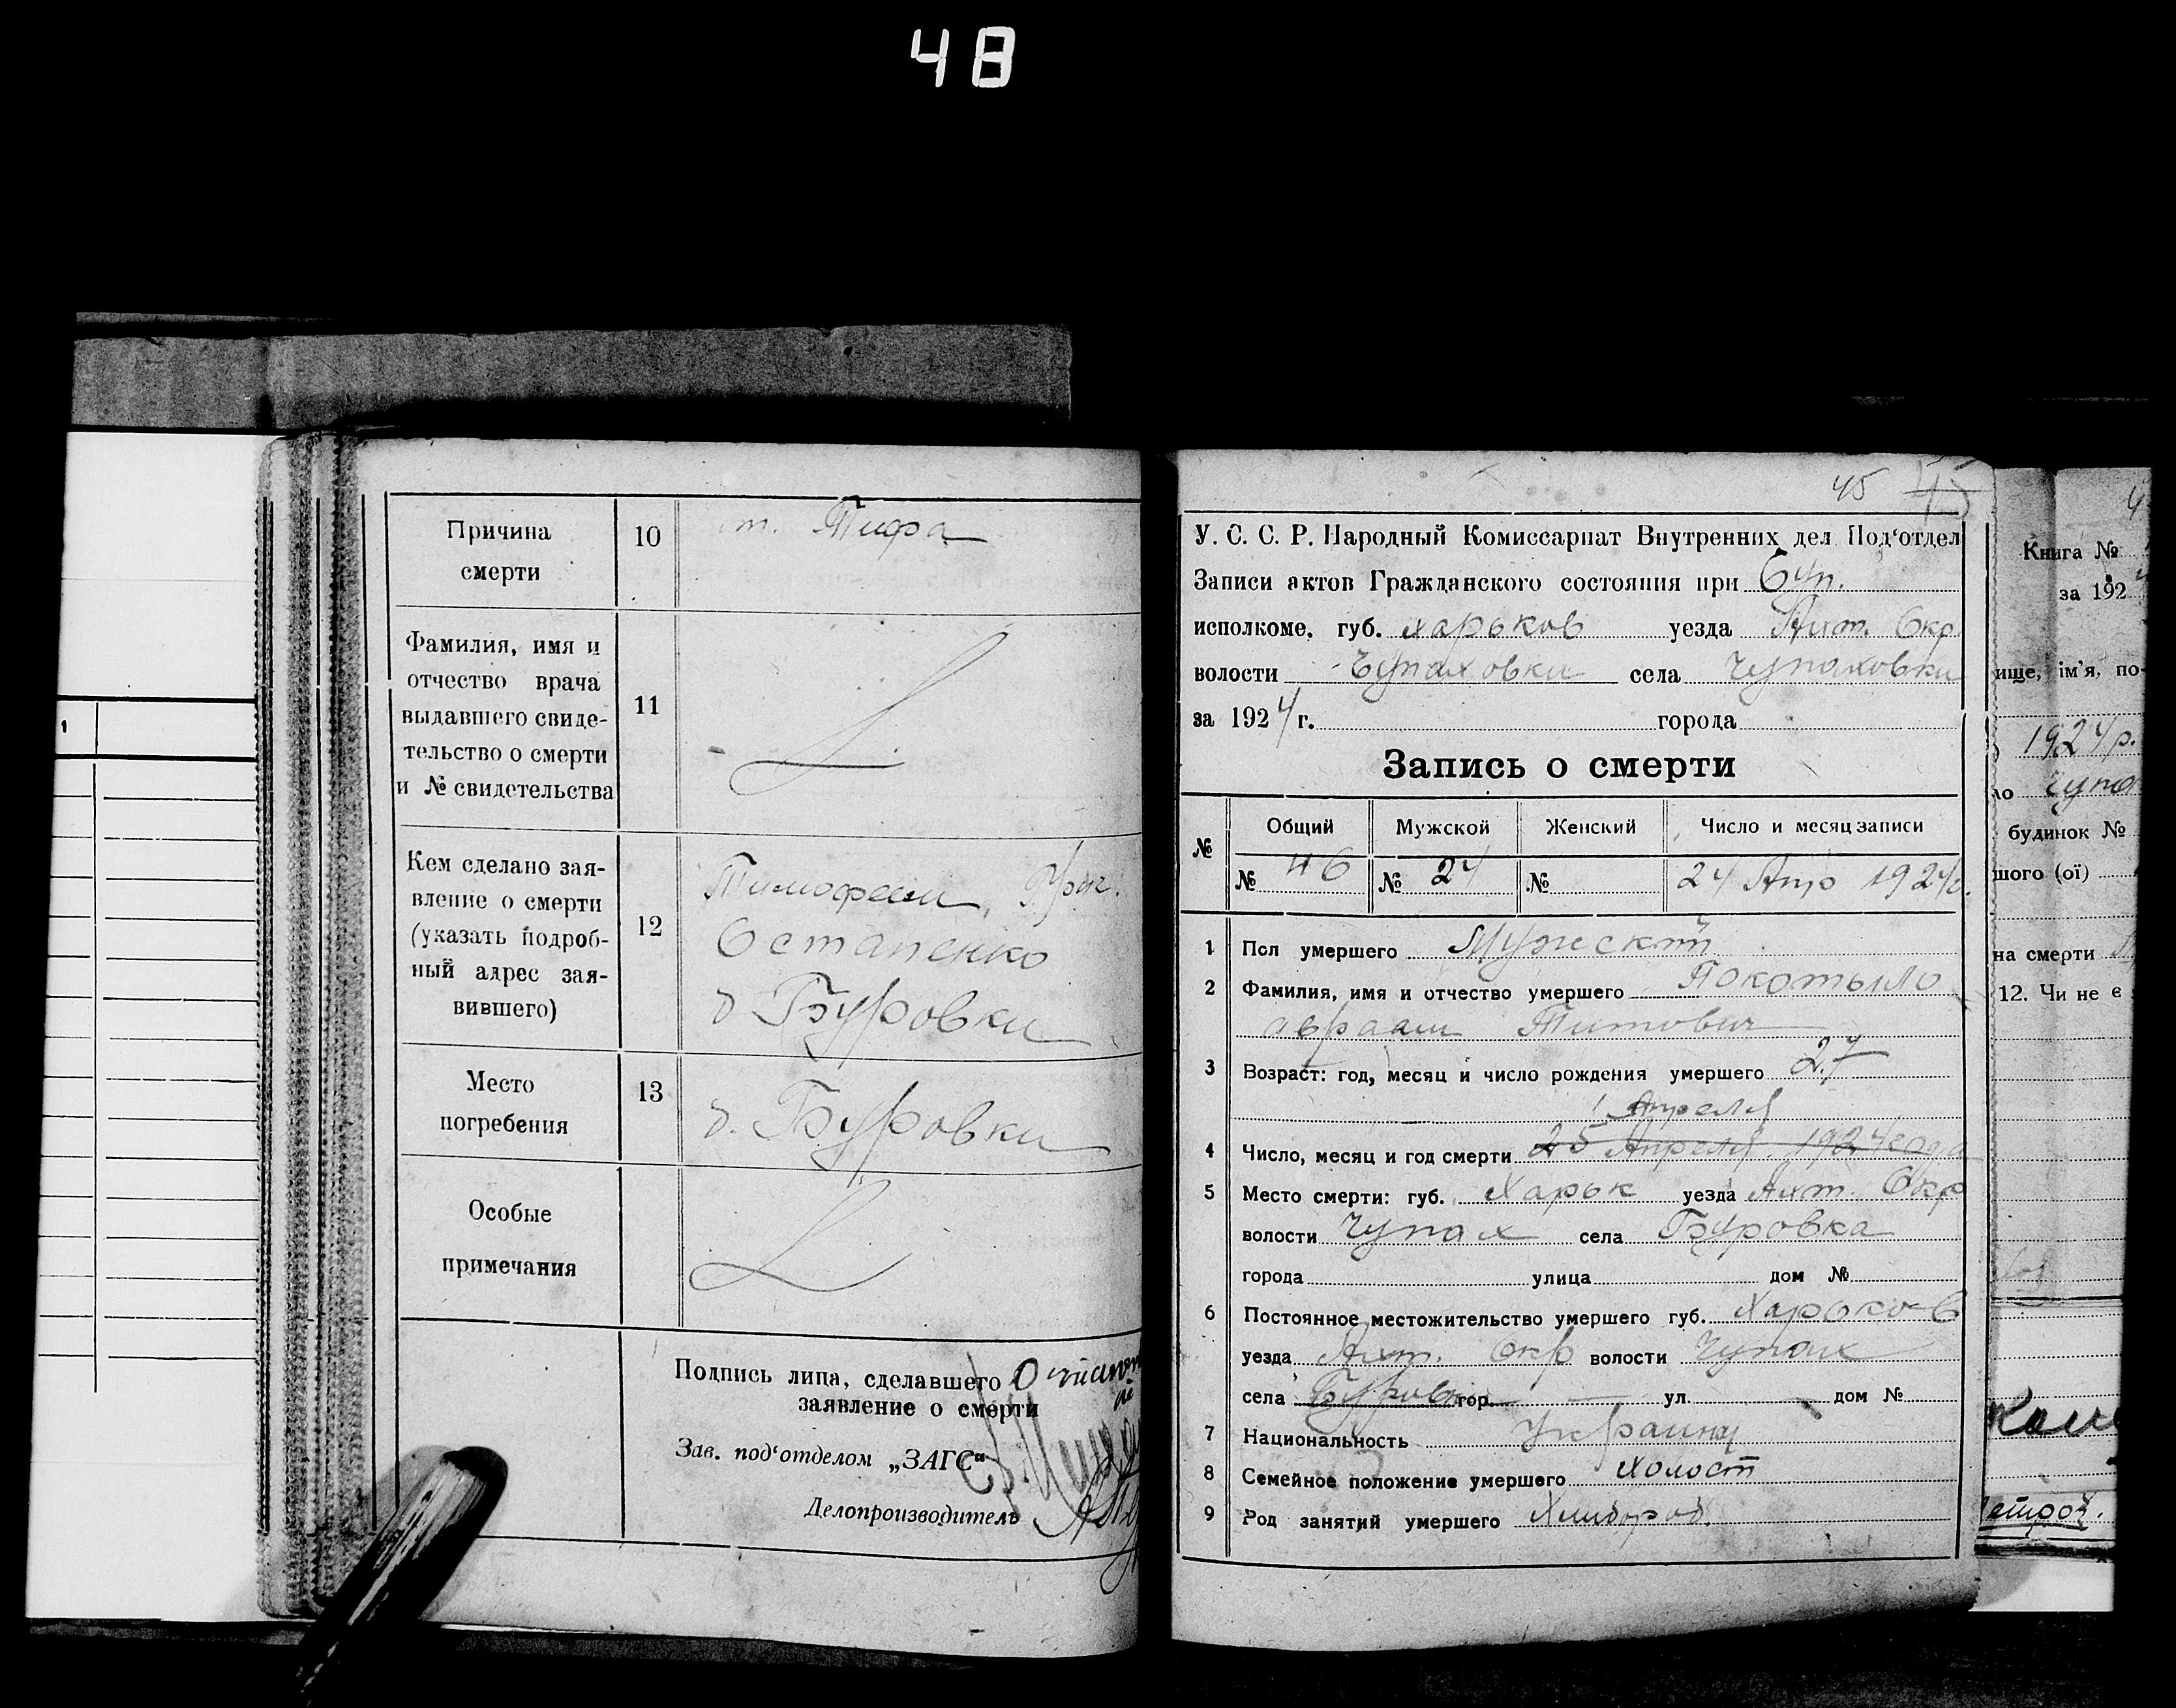 48
Причина
смерти
10
от. Тифа
Фамилия, имя и
отчество врача
выдавшего свиде-
тельство о смерти
и № свидетельства
11
Кем сделано зая-
вление о смерти
(указать подроб-
ный адрес зая-
вившего)
12
Тимофеем, Григ.
Остапенко
д Буровки
Место
погребения
13
д. Буровки
Особые
примечания
Подпись лица, сделавшего
заявление о смерти
Зав. под'отделом „ЗАГС"
Делопроизводитель
45 45
У. С. С. Р. Народный Комиссариат Внутренних дел Под'отдел
Записи актов Гражданского состояния при
исполкоме, губ. Харьков уезда Ахт. Окр
волости Чупаховки села Чупаховки
за 1924 г. города
Запись о смерти
№ Общий Мужской Женский Число и месяц записи
№ 46 № 24 № 24 Апр 1924г.
1 Пол умершего Мужский
2 Фамилия, имя и отчество умершего Покотыло
Авраам Титович
3 Возраст: год, месяц и число рождения умершего 27
1 Апреля
4 Число, месяц и год смерти 25 Апреля 1924 года
5 Место смерти: губ. Харьк уезда Ахт. Окр
волости Чупах села Буровка
города улица дом №
6 Постоянное местожительство умершего губ. Харьков
уезда Ахт. Окр волости Чупах
села Буровк гор. ул. дом №
7 Национальность Украинц
8 Семейное положение умершего Холост
9 Род занятий умершего Хлибороб.
Книга №
за 192
ище, ім'я, по-
1924 р.
Чупа
будинок №
шого (ої)
на смерти
12. Чи не є